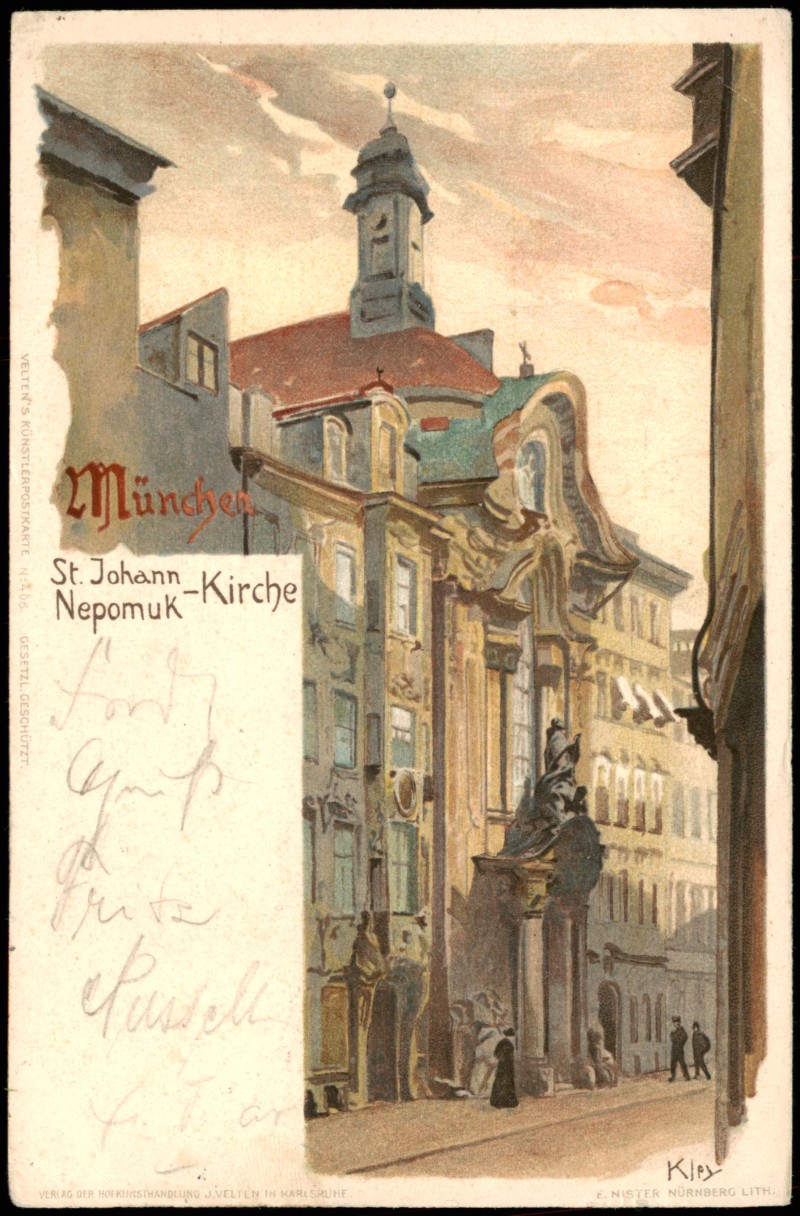 München
St. Johann
Nepomuk -Kirche
Gruß
Fritz
Kley
VELTEN'S KÜNSTLERPOSTKARTE No 408. GESETZL. GESCHÜTZT.
VERLAG DER HOFKUNSTHANDLUNG J. VELTEN IN KARLSRUHE.
E. NISTER NÜRNBERG LITH.